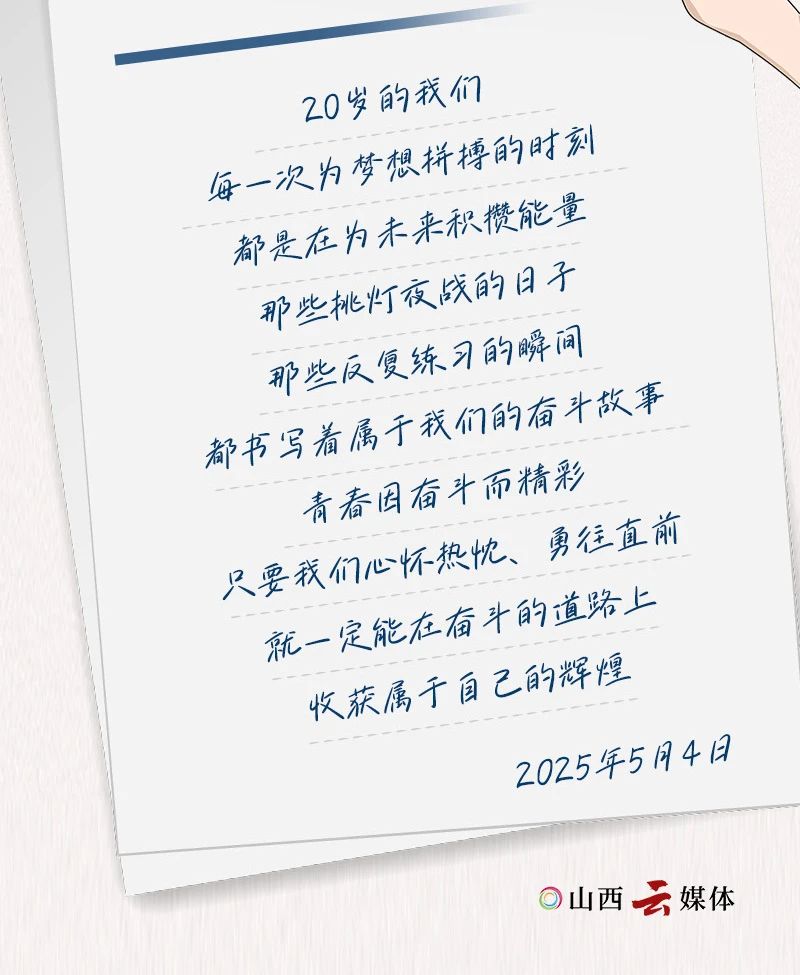 20岁的我们
每一次为梦想拼搏的时刻
都是在为未来积攒能量
那些挑灯夜战的日子
那些反复练习的瞬间
都书写着属于我们的奋斗故事
青春因奋斗而精彩
只要我们心怀热忱、勇往直前
就一定能在奋斗的道路上
收获属于自己的辉煌
2025年5月4日
山西云媒体